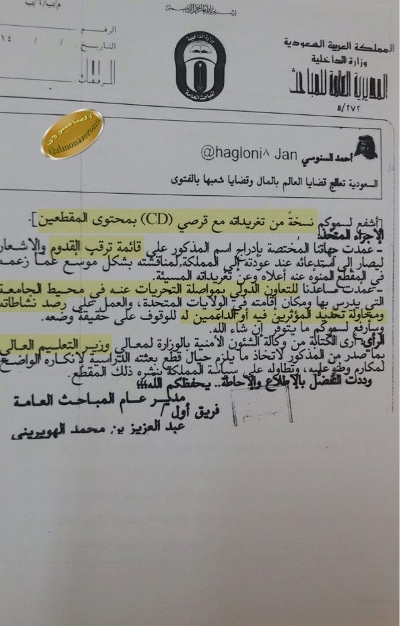 الرقم
التاريخ / / ١٤
المرفقات
المملكة العربية السعودية
وزارة الداخلية
المديرية العامة للمباحث
٥/٢٧٢
المباحث العامة
المناصرون
@almonaseron
أحمد السنوسي @hagloni٨ Jan
السعودية تعالج قضايا العالم بالمال وقضايا شعبها بالفتوى
[أشفع لسموكم نسخةً من تغريداته مع قرصي (CD) بمحتوى المقطعين].
الإجراء المتخذ
- عمدت جهاتنا المختصة بإدراج اسم المذكور على قائمة ترقب القدوم والاشعار
ليصار إلى استدعائه عند عودته إلى المملكة لمناقشته بشكل موسع عما زعمه
في المقطع المنوه عنه أعلاه وعن تغريداته المسيئة.
- عمدت مساعدنا للتعاون الدولي بمواصلة التحريات عنه في محيط الجامعة
التي يدرس بها ومكان إقامته في الولايات المتحدة، والعمل على رصد نشاطاته
ومحاولة تحديد المؤثرين فيه أو الداعمين له للوقوف على حقيقة وضعه.
وسيرفع لسموكم ما يتوفر إن شاء الله.
الرأي: أرى الكتابة من وكالة الشئون الأمنية بالوزارة لمعالي وزير التعليم العالي
بما صدر من المذكور لاتخاذ ما يلزم حيال قطع بعثته الدراسية لإنكاره الواضح
لمكارم وطنه عليه، وتطاوله على سياسة المملكة بنشره ذلك المقطع.
وددت التفضل بالإطلاع والإحاطة.. يحفظكم الله،،،
مدير عام المباحث العامة
فريق أول /
عبد العزيز بن محمد الهويريني